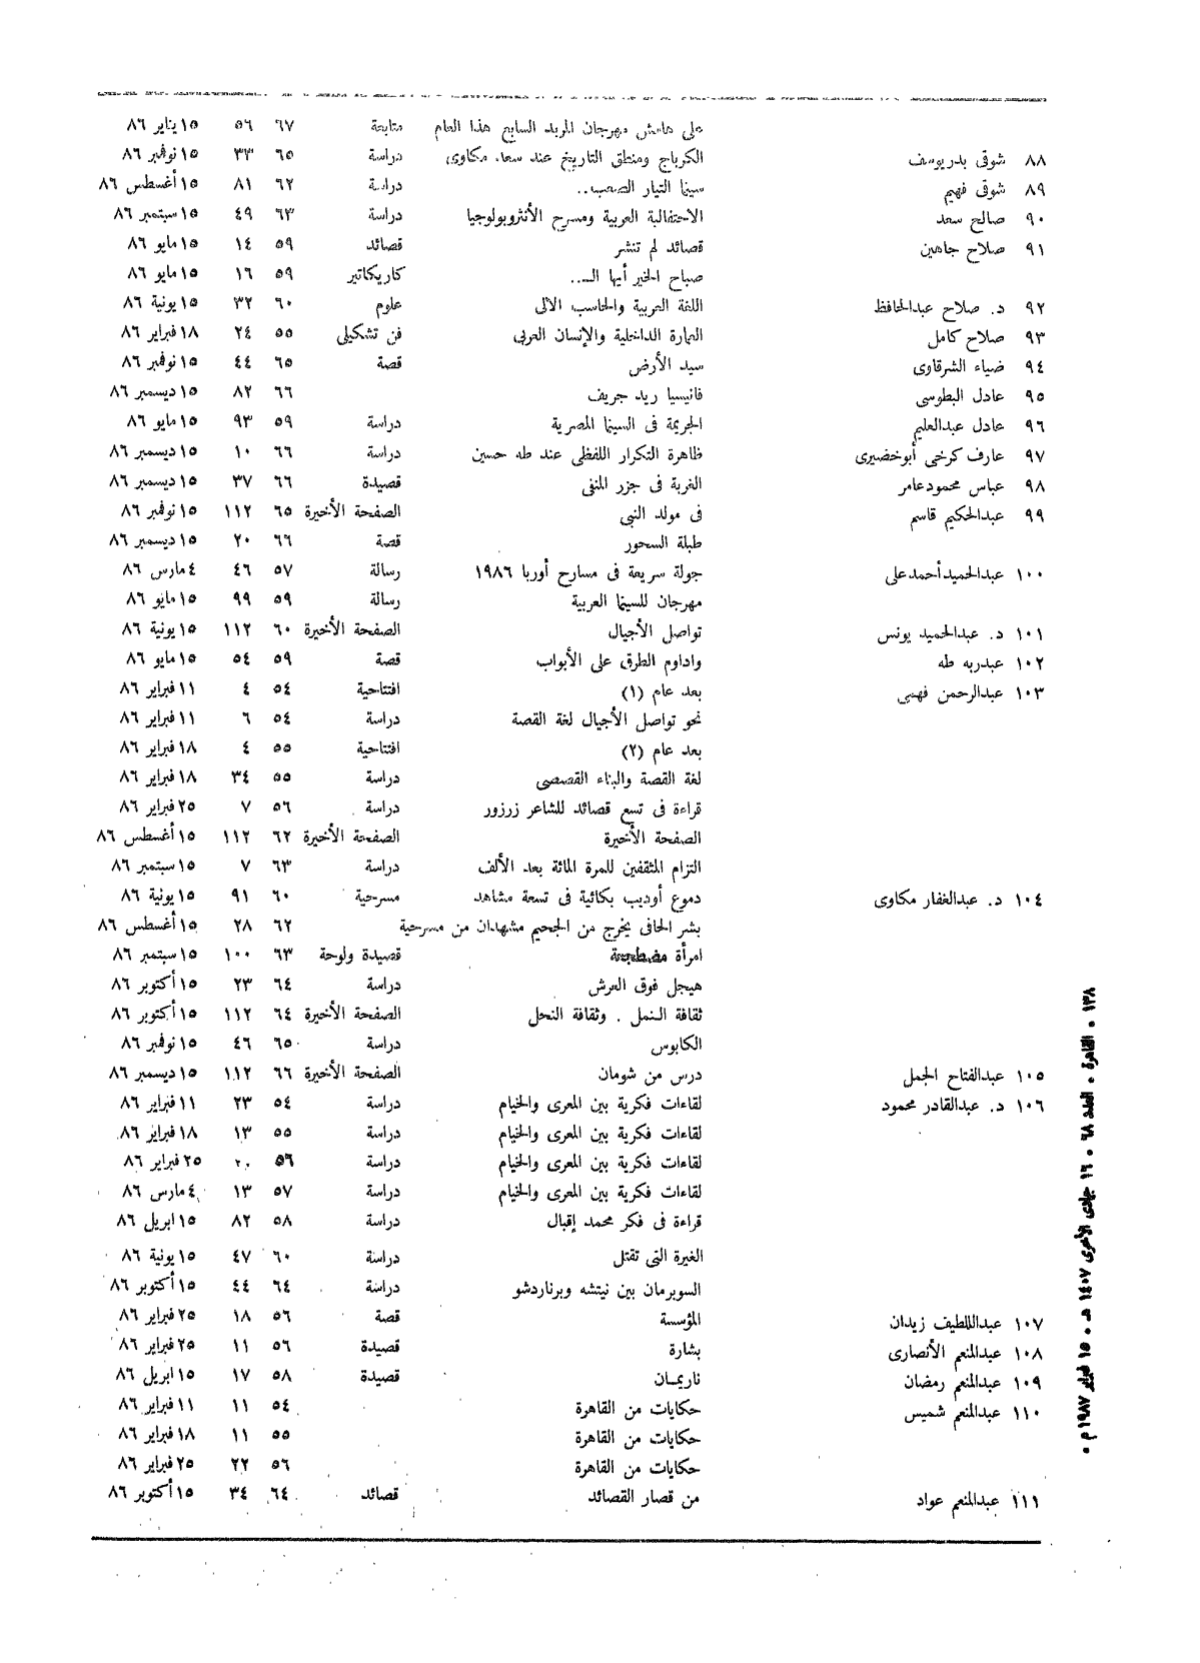 على هامش مهرجان المربد السابع هذا العام متابعة ٦٧ ٥٦ ١٥ يناير ٨٦
٨٨ شوقى بدر يوسف الكرباج ومنطق التاريخ عند سعد مكاوى دراسة ٦٥ ٣٣ ١٥ نوفمبر ٨٦
٨٩ شوقى فهيم سينما التيار الصعب.. دراسة ٦٢ ٨١ ١٥ أغسطس ٨٦
٩٠ صالح سعد الاحتفالية العربية ومسرح الأنثروبولوجيا دراسة ٦٣ ٤٩ ١٥ سبتمبر ٨٦
٩١ صلاح جاهين قصائد لم تنشر قصائد ٥٩ ١٤ ١٥ مايو ٨٦
صباح الخير أيها الـ.... كاريكاتير ٥٩ ١٦ ١٥ مايو ٨٦
٩٢ د. صلاح عبدالحافظ اللغة العربية والحاسب الآلى علوم ٦٠ ٣٢ ١٥ يونية ٨٦
٩٣ صلاح كامل العمارة الداخلية والإنسان العربى فن تشكيلى ٥٥ ٢٤ ١٨ فبراير ٨٦
٩٤ ضياء الشرقاوى سيد الأرض قصة ٦٥ ٤٤ ١٥ نوفمبر ٨٦
٩٥ عادل البطوسى فانيسيا ريد جريف ٦٦ ٨٢ ١٥ ديسمبر ٨٦
٩٦ عادل عبدالعليم الجريمة فى السينما المصرية دراسة ٥٩ ٩٣ ١٥ مايو ٨٦
٩٧ عارف كرخى أبوخضيرى ظاهرة التكرار اللفظى عند طه حسين دراسة ٦٦ ١٠ ١٥ ديسمبر ٨٦
٩٨ عباس محمود عامر الغربة فى جزر المنفى قصيدة ٦٦ ٣٧ ١٥ ديسمبر ٨٦
٩٩ عبدالحكيم قاسم فى مولد النبى الصفحة الأخيرة ٦٥ ١١٢ ١٥ نوفمبر ٨٦
طبلة السحور قصة ٦٦ ٢٠ ١٥ ديسمبر ٨٦
١٠٠ عبدالحميد أحمد على جولة سريعة فى مسارح أوربا ١٩٨٦ رسالة ٥٧ ٤٦ ٤ مارس ٨٦
مهرجان للسينما العربية رسالة ٥٩ ٩٩ ١٥ مايو ٨٦
١٠١ د. عبدالحميد يونس تواصل الأجيال الصفحة الأخيرة ٦٠ ١١٢ ١٥ يونية ٨٦
١٠٢ عبدربه طه واداوم الطرق على الأبواب قصة ٥٩ ٥٤ ١٥ مايو ٨٦
١٠٣ عبدالرحمن فهمى بعد عام (١) افتتاحية ٥٤ ٤ ١١ فبراير ٨٦
نحو تواصل الأجيال لغة القصة دراسة ٥٤ ٦ ١١ فبراير ٨٦
بعد عام (٢) افتتاحية ٥٥ ٤ ١٨ فبراير ٨٦
لغة القصة والبناء القصصى دراسة ٥٥ ٣٤ ١٨ فبراير ٨٦
قراءة فى تسع قصائد للشاعر زرزور دراسة ٥٦ ٧ ٢٥ فبراير ٨٦
الصفحة الأخيرة الصفحة الأخيرة ٦٢ ١١٢ ١٥ أغسطس ٨٦
التزام المثقفين للمرة المائة بعد الألف دراسة ٦٣ ٧ ١٥ سبتمبر ٨٦
١٠٤ د. عبدالغفار مكاوى دموع أوديب بكائية فى تسعة مشاهد مسرحية ٦٠ ٩١ ١٥ يونية ٨٦
بشر الحافى يخرج من الجحيم مشهدان من مسرحية ٦٢ ٢٨ ١٥ أغسطس ٨٦
امرأة مضطجعة قصيدة ولوحة ٦٣ ١٠٠ ١٥ سبتمبر ٨٦
هيجل فوق العرش دراسة ٦٤ ٢٣ ١٥ أكتوبر ٨٦
ثقافة النمل . وثقافة النحل الصفحة الأخيرة ٦٤ ١١٢ ١٥ أكتوبر ٨٦
الكابوس دراسة ٦٥ ٤٦ ١٥ نوفمبر ٨٦
١٠٥ عبدالفتاح الجمل درس من شومان الصفحة الأخيرة ٦٦ ١١٢ ١٥ ديسمبر ٨٦
١٠٦ د. عبدالقادر محمود لقاءات فكرية بين المعرى والخيام دراسة ٥٤ ٢٣ ١١ فبراير ٨٦
لقاءات فكرية بين المعرى والخيام دراسة ٥٥ ١٣ ١٨ فبراير ٨٦
لقاءات فكرية بين المعرى والخيام دراسة ٥٦ ٢٠ ٢٥ فبراير ٨٦
لقاءات فكرية بين المعرى والخيام دراسة ٥٧ ١٣ ٤ مارس ٨٦
قراءة فى فكر محمد إقبال دراسة ٥٨ ٨٢ ١٥ ابريل ٨٦
الغيرة التى تقتل دراسة ٦٠ ٤٧ ١٥ يونية ٨٦
السوبرمان بين نيتشه وبرناردشو دراسة ٦٤ ٤٤ ١٥ أكتوبر ٨٦
١٠٧ عبداللطيف زيدان المؤسسة قصة ٥٦ ١٨ ٢٥ فبراير ٨٦
١٠٨ عبدالمنعم الأنصارى بشارة قصيدة ٥٦ ١١ ٢٥ فبراير ٨٦
١٠٩ عبدالمنعم رمضان ناريمان قصيدة ٥٨ ١٧ ١٥ ابريل ٨٦
١١٠ عبدالمنعم شميس حكايات من القاهرة ٥٤ ١١ ١١ فبراير ٨٦
حكايات من القاهرة ٥٥ ١١ ١٨ فبراير ٨٦
حكايات من القاهرة ٥٦ ٢٢ ٢٥ فبراير ٨٦
١١١ عبدالمنعم عواد من قصار القصائد قصائد ٦٤ ٣٤ ١٥ أكتوبر ٨٦
١٣٨ • القاهرة • العدد ٦٨ • ١٦ جمادى الأخرى ١٤٠٧ هـ • ١٥ فبراير ١٩٨٧ م •